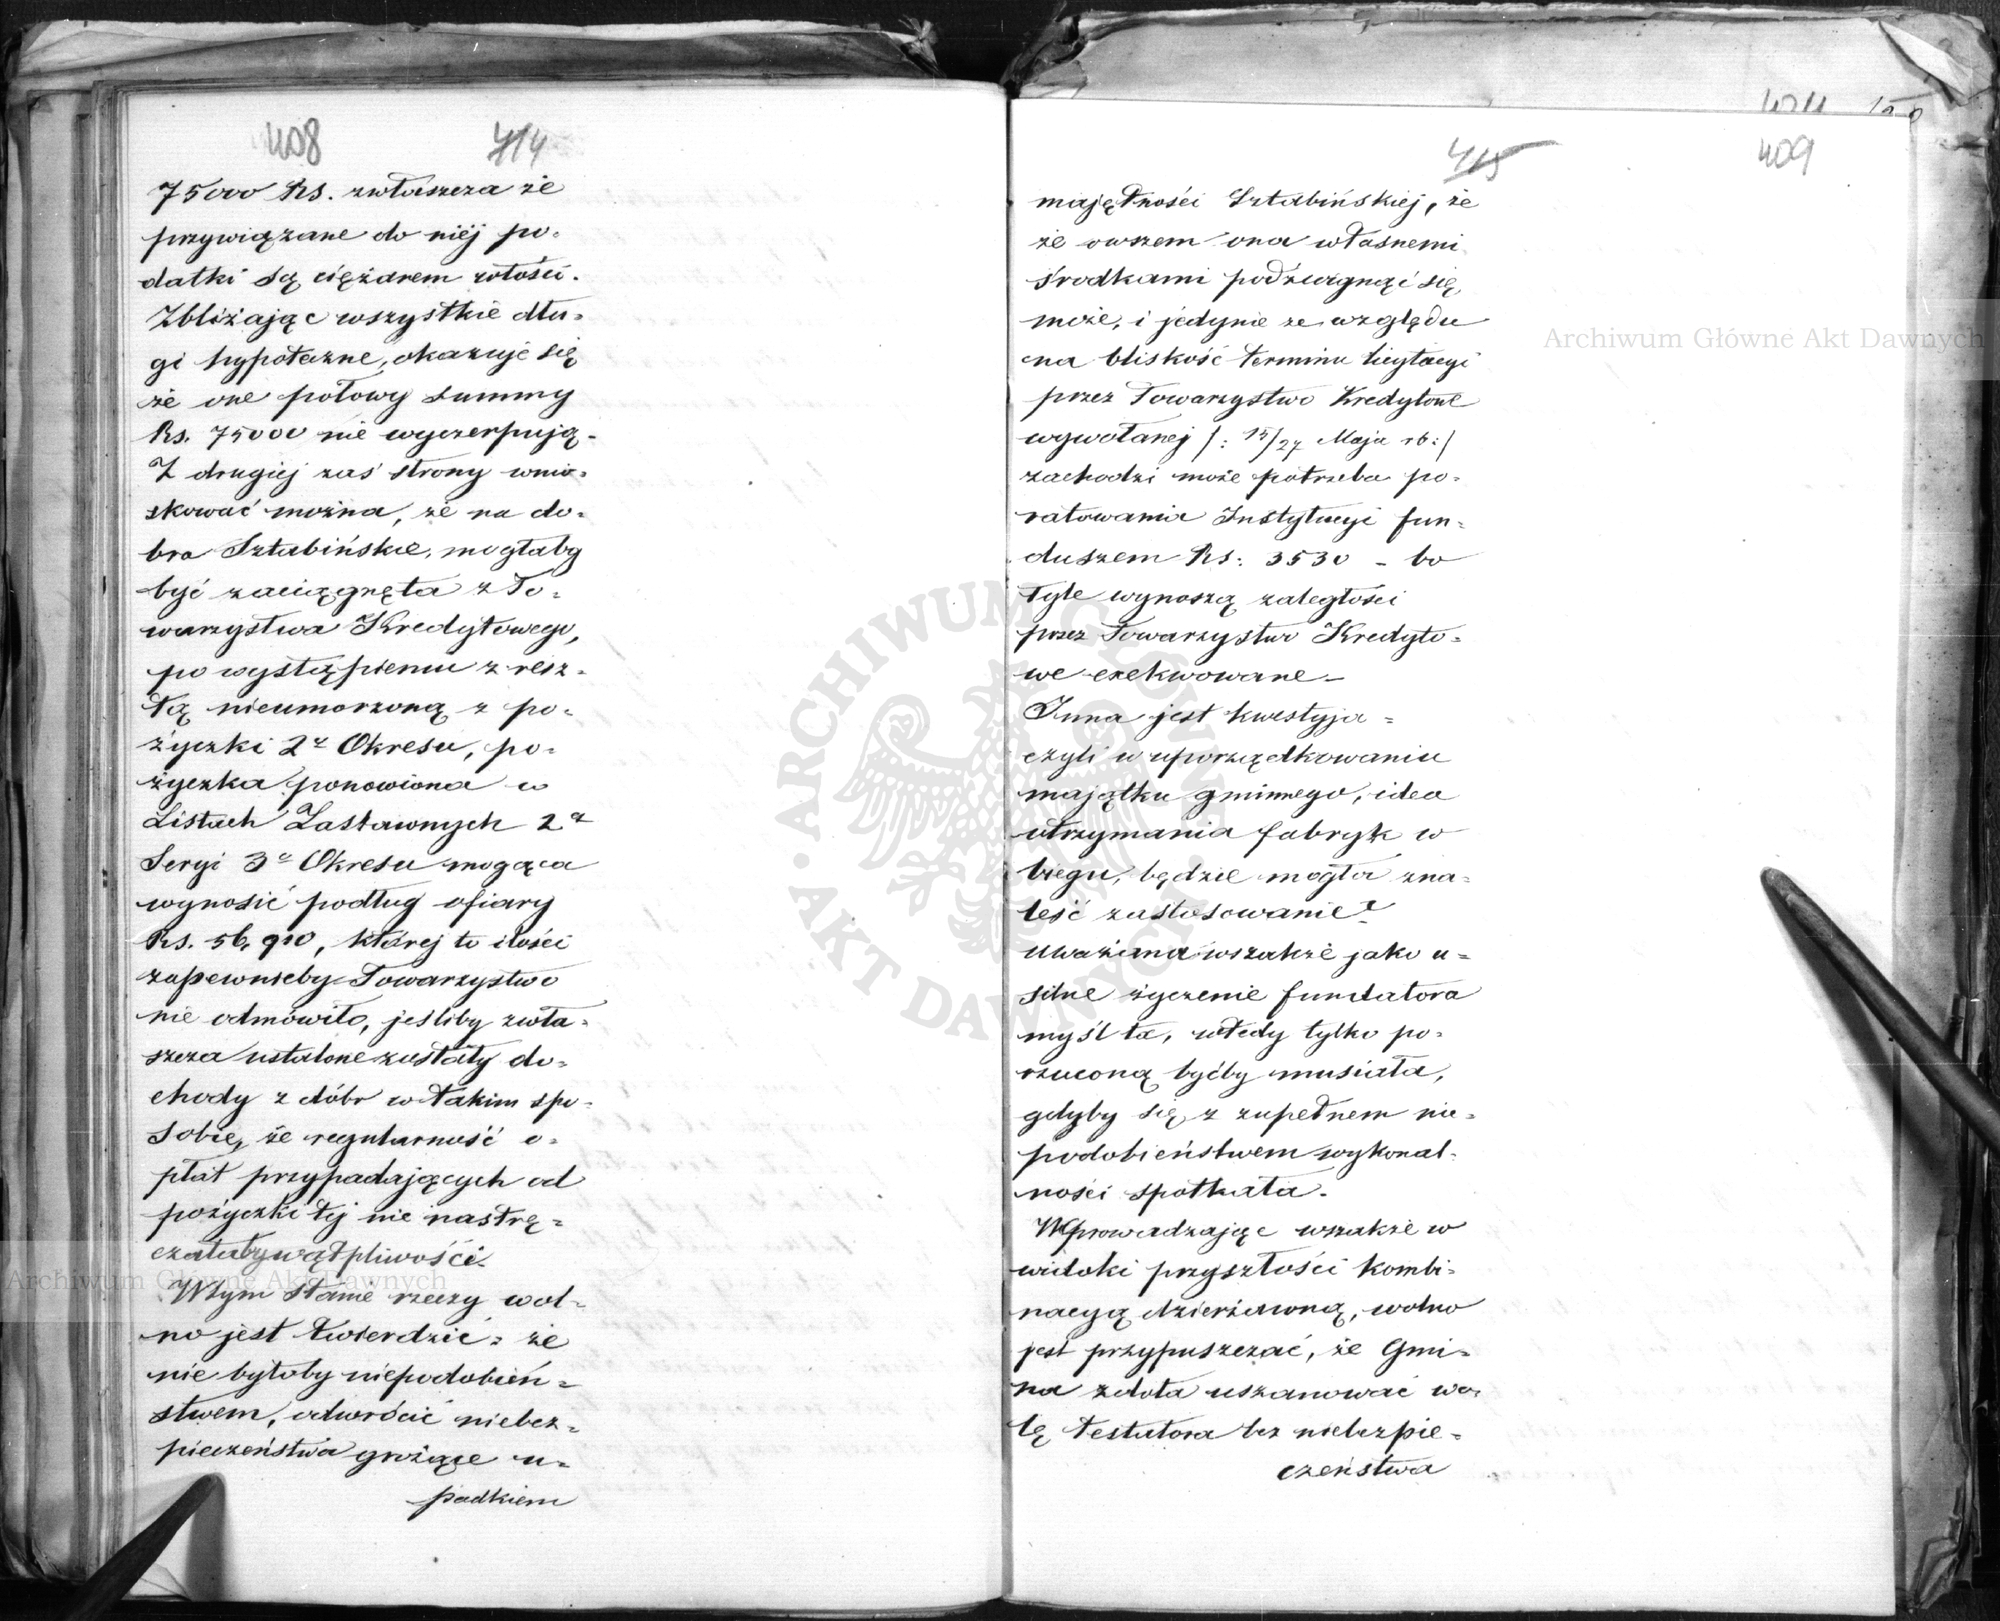 408 414
75000 Rs. zwłaszcza że
przywiązane do niéj po=
datki są ciężarem włości.
Zbliżając wszystkie dłu=
gi hypoteczne, okazuje się
że one połowy summy
Rs. 75000 nie wyczerpują -
Z drugiej zaś strony wnio=
skować można, że na do=
bra Sztabińskie, mogłaby
być zaciągnęta z To=
warzystwa Kredytowego,
po wystąpieniu z resz=
tą nieumorzoną z po=
życzki 2º Okresu, po=
życzka ponowiona w
Listach Zastawnych 2ª
Seryi 3º Okresu mogąca
wynosić podług ofiary
Rs. 56,910, której to ilości
zapewnieby Towarzystwo
nie odmówiło, jeśliby zwła=
szcza ustalone zostały do=
chody z dóbr w takim spo=
sobie, że regularność o=
płat przypadających od
pożyczki tej nie nastrę=
czałaby wątpliwości.
W tym stanie rzeczy wol=
no jest twierdzić = że
nie byłoby niepodobień=
stwem, odwrócić niebez=
pieczeństwa grożące u=
padkiem
415 409
majętności Sztabińskiej, że
że owszem ona własnemi
środkami podźwignąć się
może, i jedynie ze względu
na bliskość terminu licytacyi
przez Towarzystwo Kredytowe
wywołanej /: 15/27 Maja rb :/
zachodzi może potrzeba po=
ratowania Instytucyi fun=
duszem Rs: 3530 - bo
tyle wynoszą zaległości
przez Towarzystwo Kredyto=
we exekwowane -
Inna jest kwestyja =
czyli w uporządkowaniu
majątku gminnego, idea
utrzymania fabryk w
biegu, będzie mogła zna=
leść zastosowanie?
Uważana wszakże jako u=
silne życzenie fundatora
myśl ta, wtedy tylko po=
rzuconą byćby musiała,
gdyby się z zupełnem nie=
podobieństwem wykonal=
ności spotkała.
Wprowadzając wszakże w
widoki przyszłości kombi=
nacyą dzierżawną, wolno
jest przypuszczać, że Gmi=
na zdoła uszanować wo=
lę testatora bez niebezpie=
czeństwa
Archiwum Główne Akt Dawnych
Archiwum Główne Akt Dawnych
ARCHIWUM GŁÓWNE AKT DAWNYCH